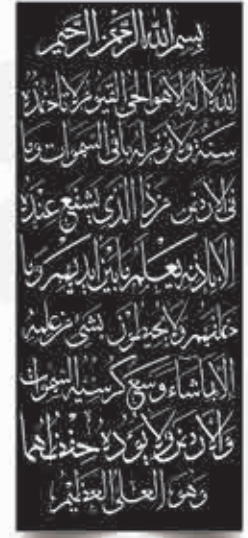 بسم الله الرحمن الرحيم
الله لا اله الا هو الحي القيوم لا تاخذه
سنة ولا نوم له ما في السموات وما
في الارض من ذا الذي يشفع عنده
الا باذنه يعلم ما بين ايديهم وما
خلفهم ولا يحيطون بشئ من علمه
الا بما شاء وسع كرسيه السموات
والارض ولا يؤده حفظهما
وهو العلي العظيم